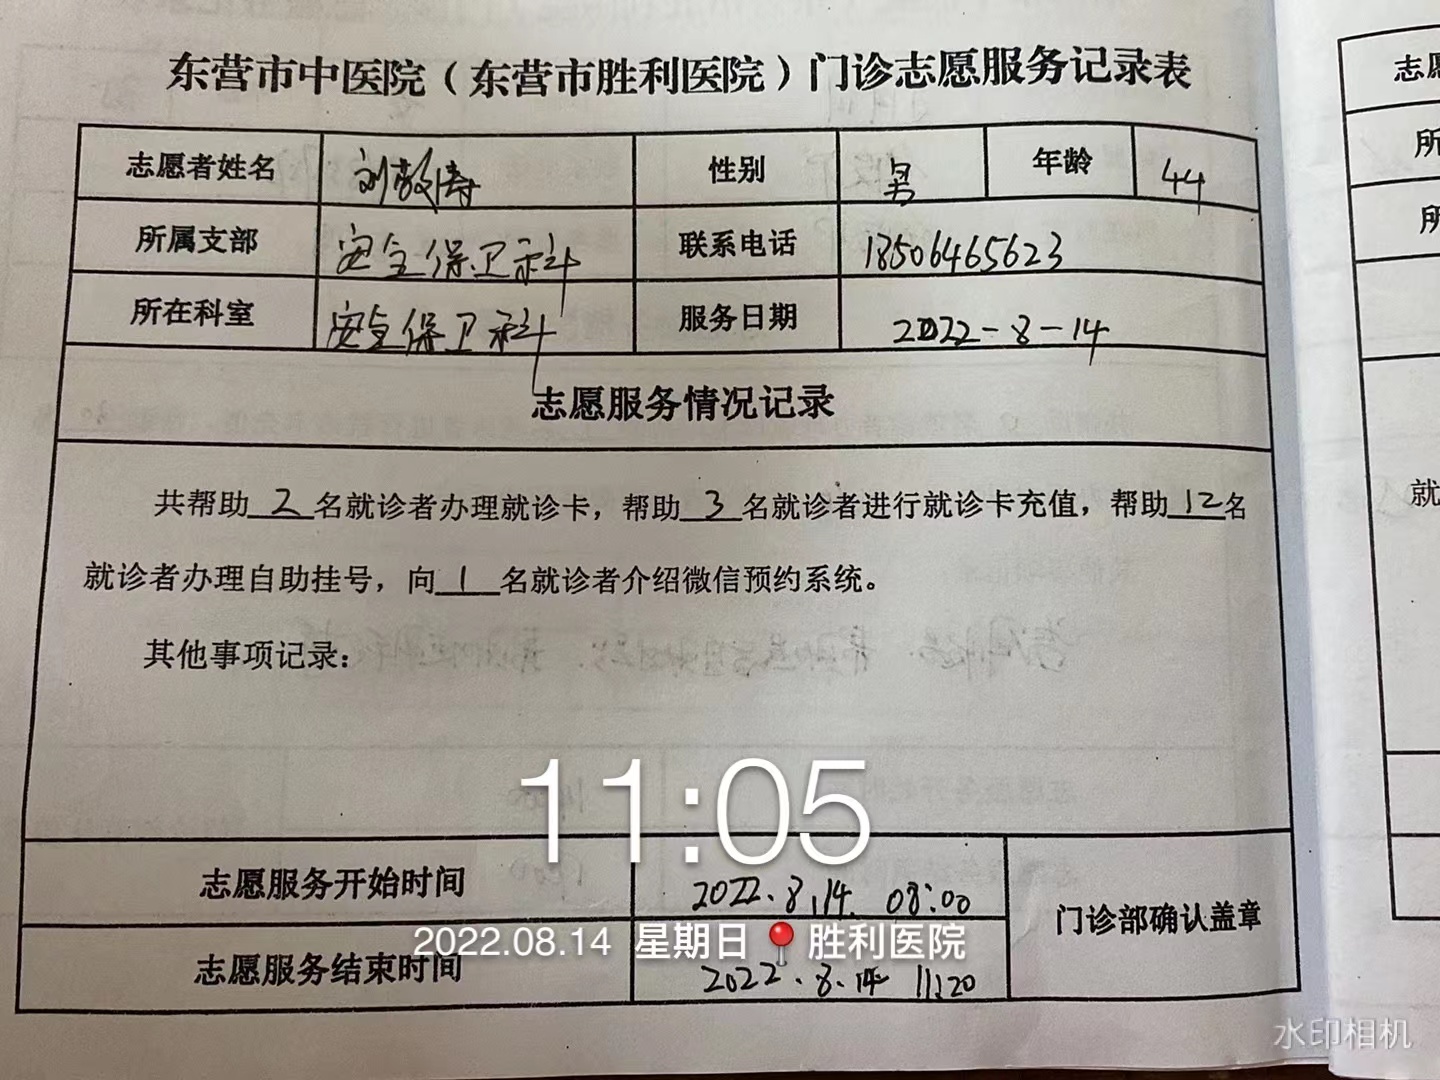 东营市中医院（东营市胜利医院）门诊志愿服务记录表
志愿者姓名 刘敬涛 性别 男 年龄 44
所属支部 安全保卫科 联系电话 18506465623
所在科室 安全保卫科 服务日期 2022-8-14
志愿服务情况记录
共帮助2名就诊者办理就诊卡，帮助3名就诊者进行就诊卡充值，帮助12名
就诊者办理自助挂号，向1名就诊者介绍微信预约系统。
其他事项记录：
11:05
志愿服务开始时间 2022.8.14 08:00
门诊部确认盖章
2022.08.14 星期日 胜利医院
志愿服务结束时间 2022.8.14 11:20
水印相机
志愿
所
所
就